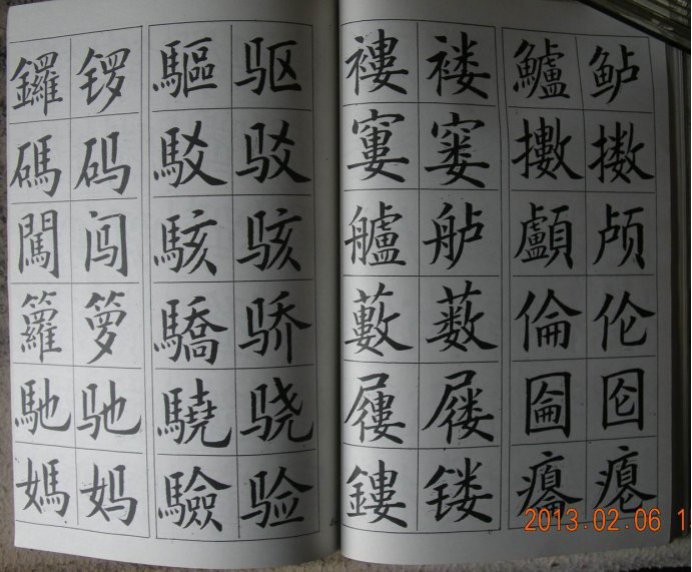 鑼 锣 驅 驱 褸 褛 鱸 鲈
碼 码 駁 驳 窶 窭 擻 擞
闖 闯 駭 骇 艫 舻 顱 颅
籮 箩 驕 骄 藪 薮 倫 伦
馳 驰 驍 骁 屨 屦 圇 囵
媽 妈 驗 验 鏤 镂 癟 瘪
2013.02.06